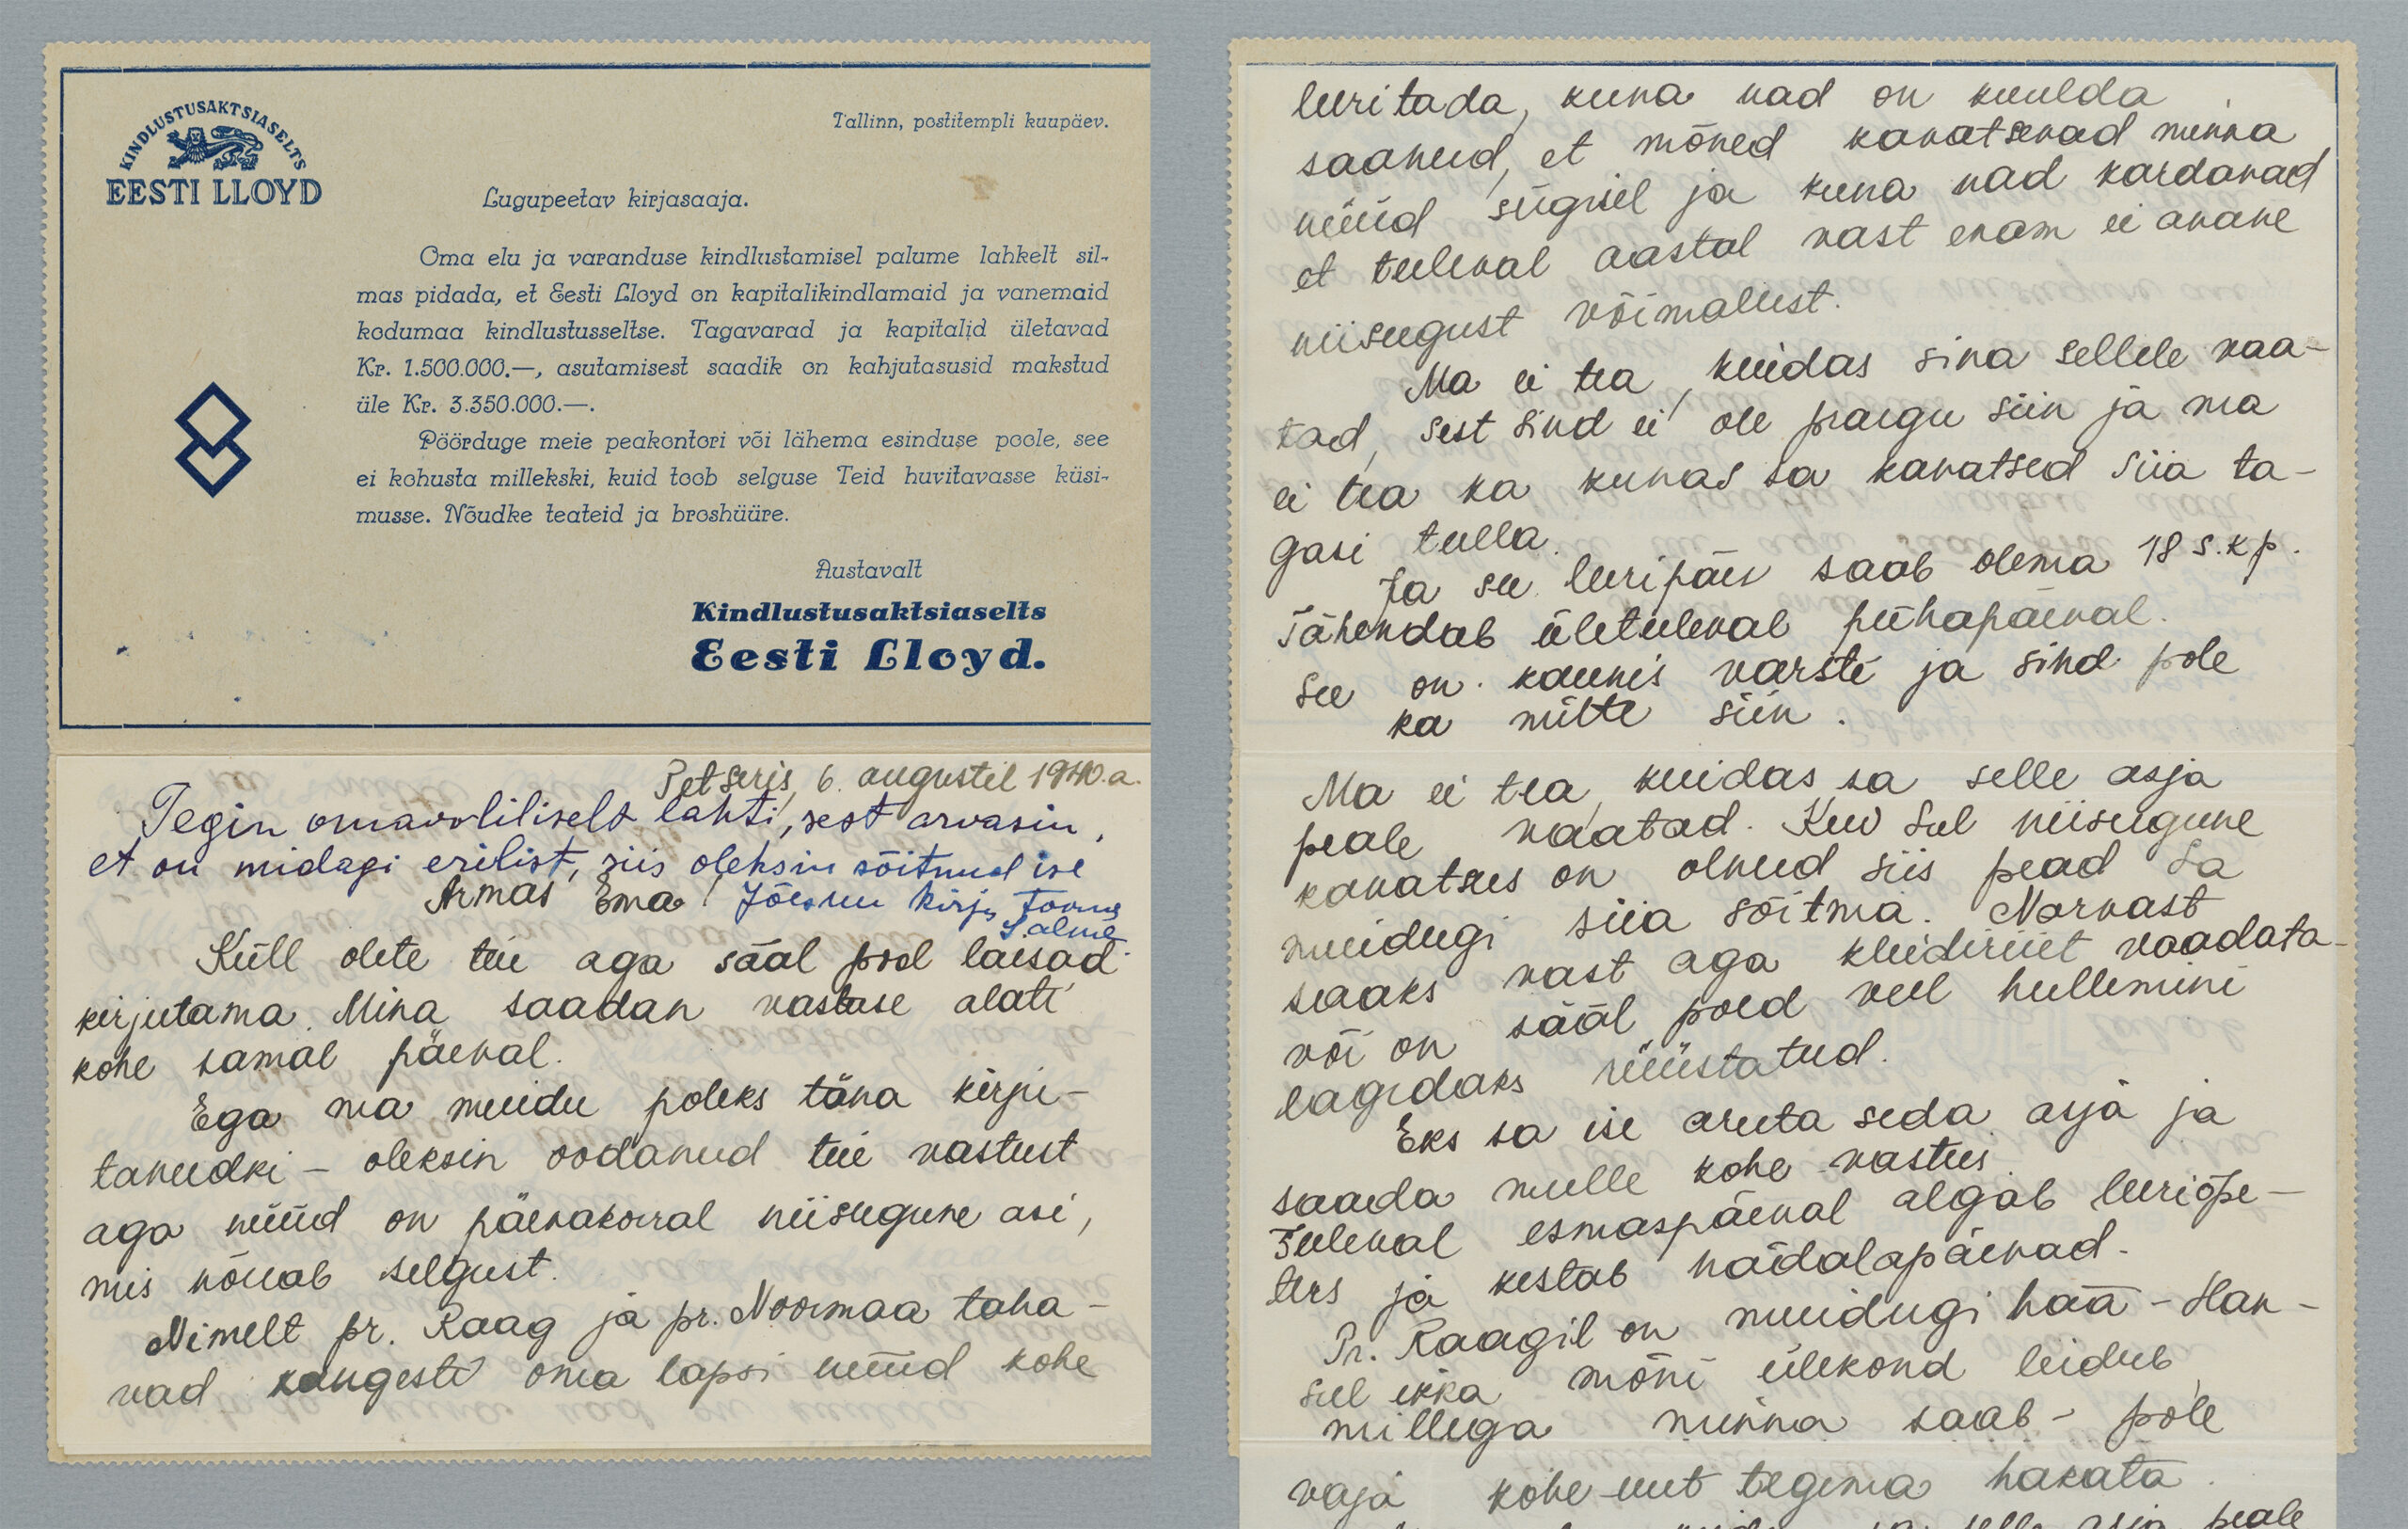 KINDLUSTUSAKTSIASELTS
EESTI LLOYD
Tallinn, postitempli kuupäev.
Lugupeetav kirjasaaja.
Oma elu ja varanduse kindlustamisel palume lahkelt sil-
mas pidada, et Eesti Lloyd on kapitalikindlamaid ja vanemaid
kodumaa kindlustusseltse. Tagavarad ja kapitalid ületavad
Kr. 1.500.000.—, asutamisest saadik on kahjutasusid makstud
üle Kr. 3.350.000.—.
Pöörduge meie peakontori või lähema esinduse poole, see
ei kohusta millekski, kuid toob selguse Teid huvitavasse küsi-
musse. Nõudke teateid ja broshüüre.
Austavalt
Kindlustusaktsiaselts
Eesti Lloyd.
Petseris, 6. augustil 1940.a.
Tegin omavoliliselt lahti, sest arvasin,
et on midagi erilist, siis oleksin sõitnud ise
Armas Ema! Jõesuu kirju
Salme
Küll olete teie aga sääl pool laisad
kirjutama. Mina saadan vastuse alati
kohe samal päeval.
Ega ma muidu poleks täna kirju-
tanudki – oleksin oodanud teie vastust
aga nüüd on päevakorral niisugune asi,
mis nõuab selgust.
Nimelt pr. Raag ja pr. Noormaa taha-
vad kangesti oma lapsi nüüd kohe
leeritada, kuna nad on kuulda
saanud, et mõned kavatsevad minna
nüüd sügisel ja kuna nad kardavad
et tuleval aastal vast enam ei avane
niisugust võimalust.
Ma ei tea, kuidas sina sellele vaa-
tad, sest sind ei ole praegu siin ja ma
ei tea ka kunas sa kavatsed siia ta-
gasi tulla.
Ja see leeripäev saab olema 18 s.kp.
Tähendab ületuleval pühapäeval.
See on kaunis varsti ja sind pole
ka mitte siin.
Ma ei tea, kuidas sa selle asja
peale vaatad. Kui sul niisugune
kavatsus on olnud siis pead sa
muidugi siia sõitma. Narvast
saaks vast aga kleidiriiet vaadata
või on sääl poed veel hullemini
lagedaks rüüstatud.
Eks sa ise aruta seda asja ja
saada mulle kohe vastus.
Tuleval esmaspäeval algab leeriõpe-
tus ja kestab nädalapäevad.
Pr. Raagil on muidugi hää – Han-
sul ikka mõni ülikond leidub,
millega minna saab – pole
vaja kohe uut tegema hakata.
sa selle asja peale